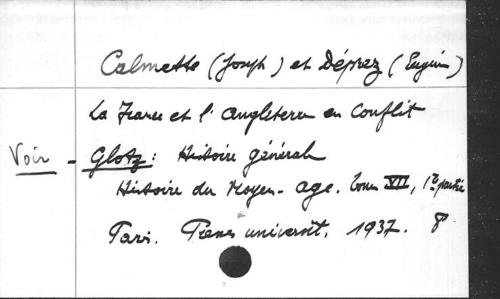 Calmette (Joseph) et Déprez (Eugène)
La France et l'Angleterre en Conflit
Voir - Glotz : Histoire générale
Histoire du Moyen-age. Tome VII, 1re partie
Paris. Presses universit. 1937. 8°